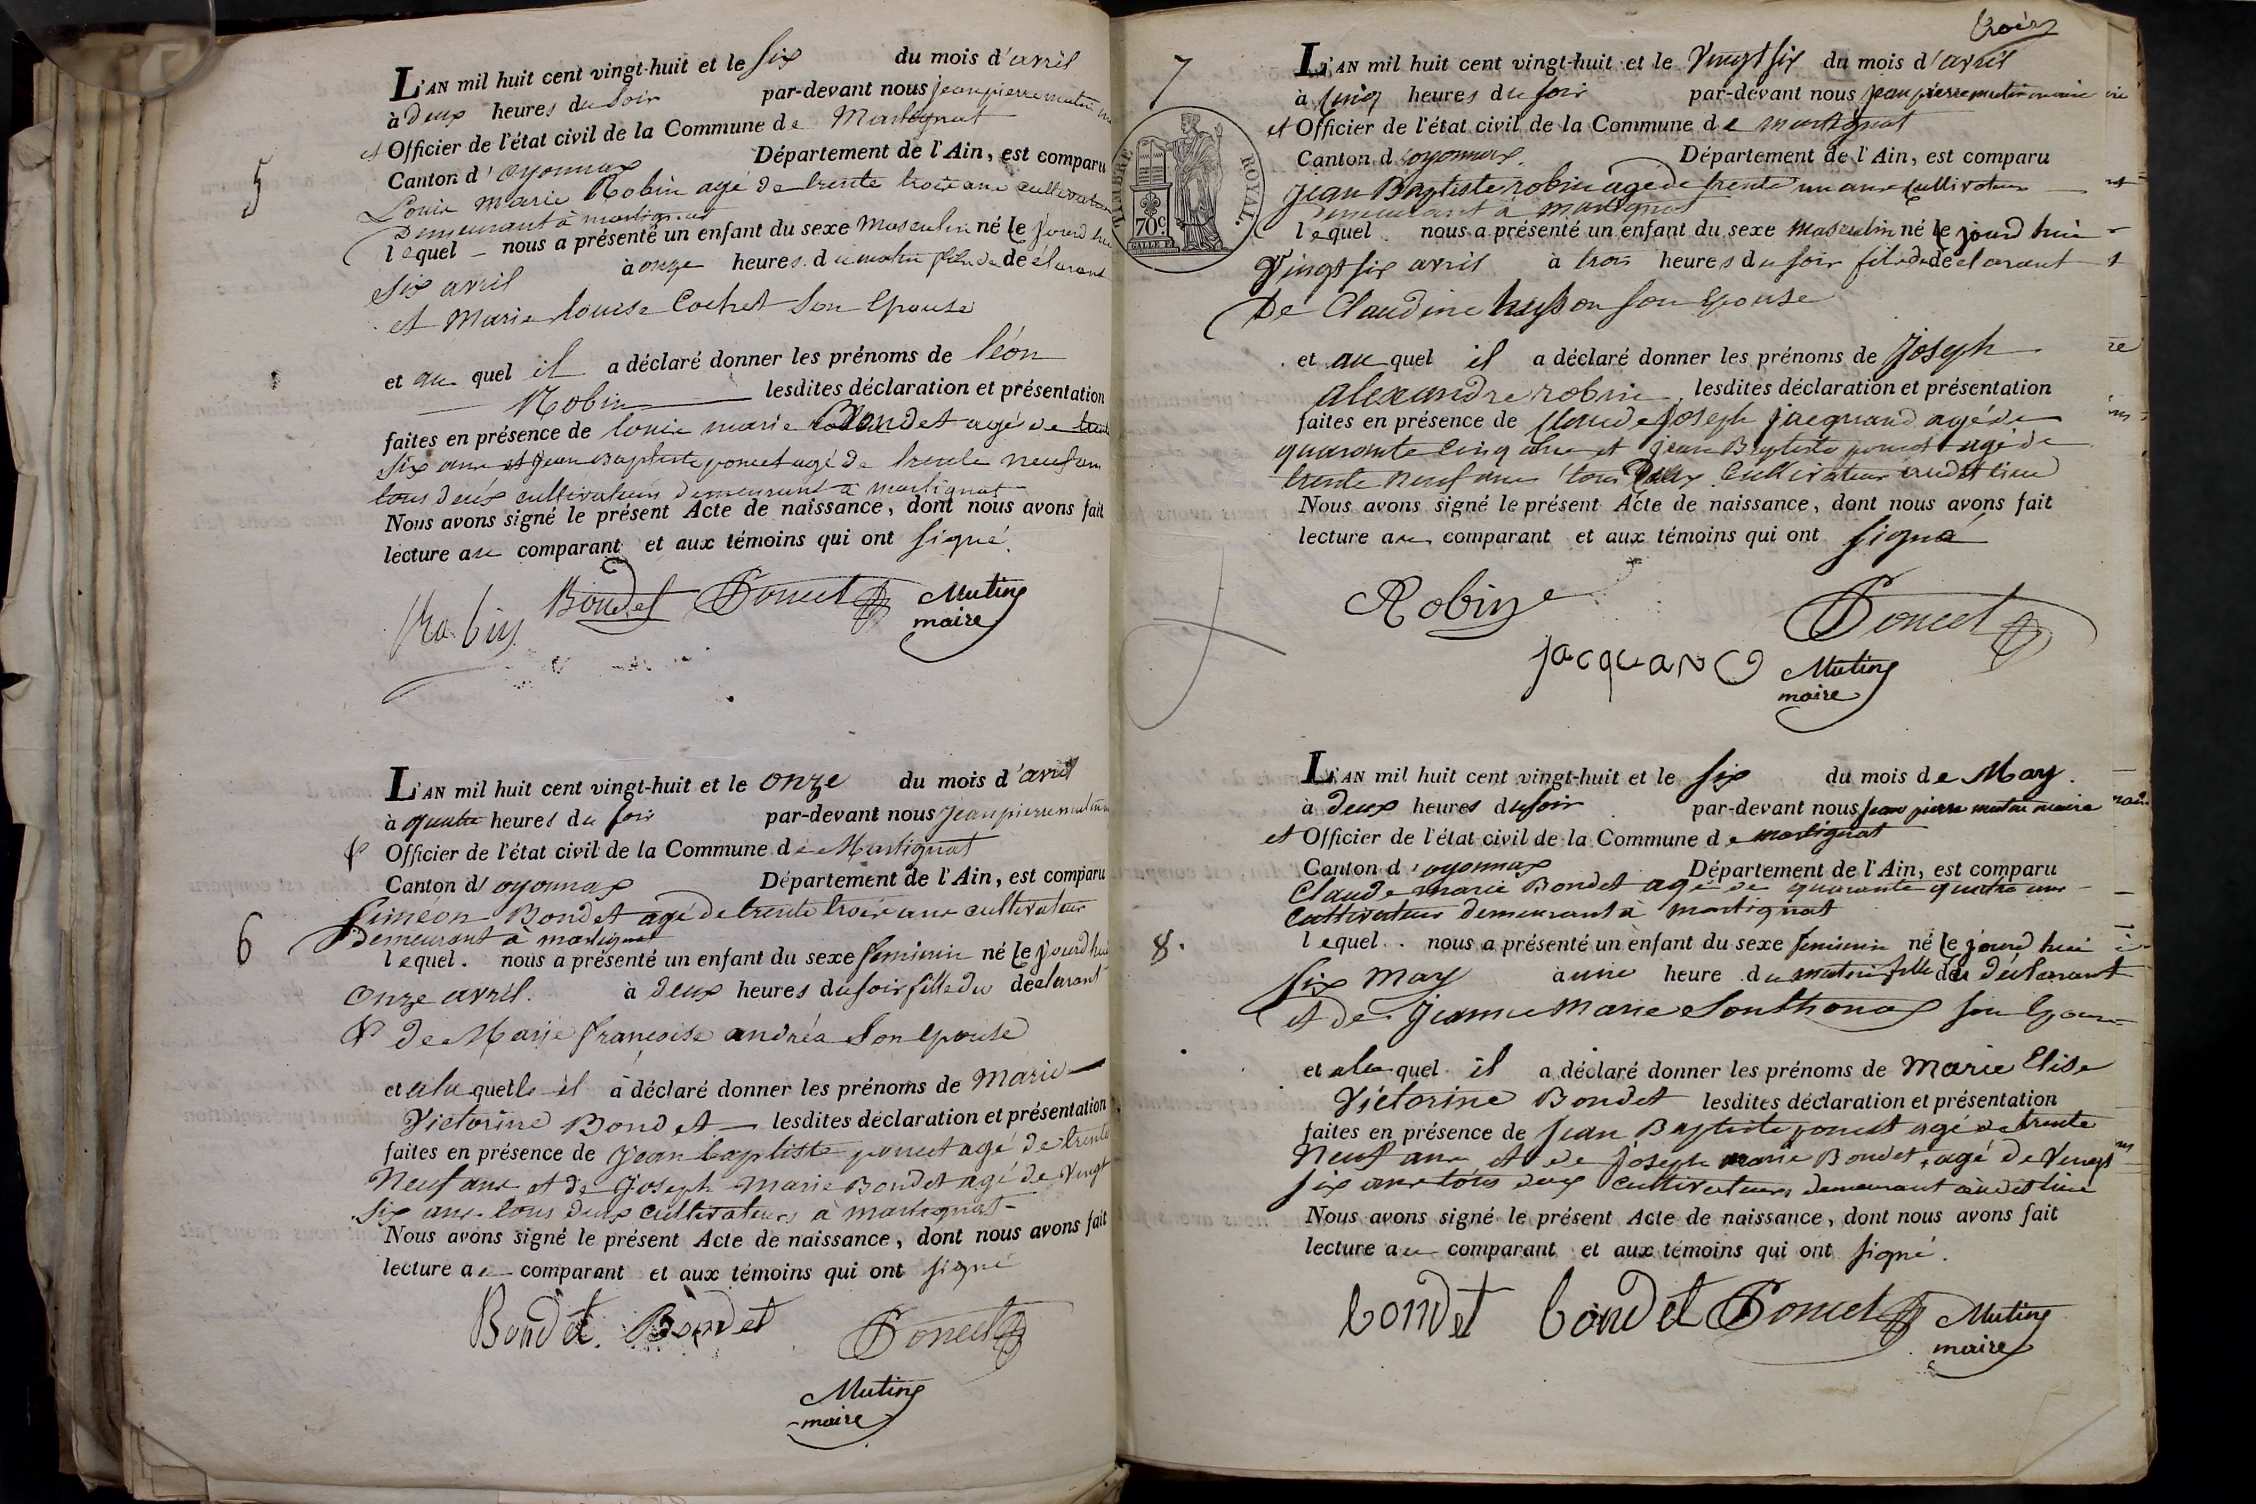 5
L'AN mil huit cent vingt-huit et le six du mois d'avril
à deux heures du soir par-devant nous jean pierre mutin
et Officier de l'état civil de la Commune de Martignat
Canton d'oyonnax Département de l'Ain, est comparu
Louis marie Robin agé de trente trois ans cultivateur
Demeurant à martignat
lequel nous a présenté un enfant du sexe masculin né le jourd'hui
six avril à onze heures du matin fils du déclarant
et Marie louise Cochet son épouse
et au quel il a déclaré donner les prénoms de léon
Robin lesdites déclaration et présentation
faites en présence de louis marie Bondet agé de trente
six ans et jean Baptiste poncet agé de trente neuf ans
tous deux cultivateurs demeurant à martignat
Nous avons signé le présent Acte de naissance, dont nous avons fait
lecture au comparant et aux témoins qui ont signé.
Robin Bondet Poncet Mutin
maire
6
L'AN mil huit cent vingt-huit et le onze du mois d'avril
à quatre heures du soir par-devant nous jean pierre mutin
et Officier de l'état civil de la Commune de Martignat
Canton d'oyonnax Département de l'Ain, est comparu
Siméon Bondet agé de trente trois ans cultivateur
demeurant à martignat
lequel. nous a présenté un enfant du sexe feminin né le jourd'hui
onze avril. à deux heures du soir fille du déclarant
et de Marie françoise andréa son épouse
et a la quelle il a déclaré donner les prénoms de Marie
Victorine Bondet lesdites déclaration et présentation
faites en présence de jean baptiste poncet agé de trente
Neuf ans et de Joseph Marie Bondet agé de vingt
six ans tous deux cultivateurs à martignat
Nous avons signé le présent Acte de naissance, dont nous avons fait
lecture au comparant et aux témoins qui ont signé
Bondet. Bondet Poncet
Mutin
maire
trois
7
TIMBRE ROYAL.
70c.
L'AN mil huit cent vingt-huit et le vingt six du mois d'avril
à cinq heures du soir par-devant nous jean pierre mutin maire
et Officier de l'état civil de la Commune de martignat
Canton d'oyonnax. Département de l'Ain, est comparu
jean Baptiste robin agé de trente un ans cultivateur
demeurant à martignat
lequel nous a présenté un enfant du sexe masculin né le jourd'hui
Vingt six avril à trois heures du soir fils du déclarant
De Claudine son épouse
et au quel il a déclaré donner les prénoms de Joseph
alexandre robin lesdites déclaration et présentation
faites en présence de claude joseph jacquand agé de
quarante cinq ans et jean Baptiste poncet agé de
trente neuf ans tous deux cultivateur audit lieu
Nous avons signé le présent Acte de naissance, dont nous avons fait
lecture au comparant et aux témoins qui ont signé
Robin Poncet
jacquand Mutin
maire
8.
L'AN mil huit cent vingt-huit et le six du mois de May.
à deux heures du soir par-devant nous jean pierre mutin maire
et Officier de l'état civil de la Commune de martignat
Canton d'oyonnax Département de l'Ain, est comparu
Claude marie Bondet agé de quarante quatre ans
cultivateur demeurant à martignat
lequel. nous a présenté un enfant du sexe feminin né le jourd'hui
six may à une heure du matin fille du déclarant
et de jeanne Marie Sonthonax son épouse
et a la quel il a déclaré donner les prénoms de Marie Elise
Victorine Bondet lesdites déclaration et présentation
faites en présence de jean Baptiste poncet agé de trente
Neuf ans et de joseph marie Bondet agé de vingt
six ans tous deux cultivateurs demeurant audit lieu
Nous avons signé le présent Acte de naissance, dont nous avons fait
lecture au comparant et aux témoins qui ont signé.
bondet bondet Poncet Mutin
maire